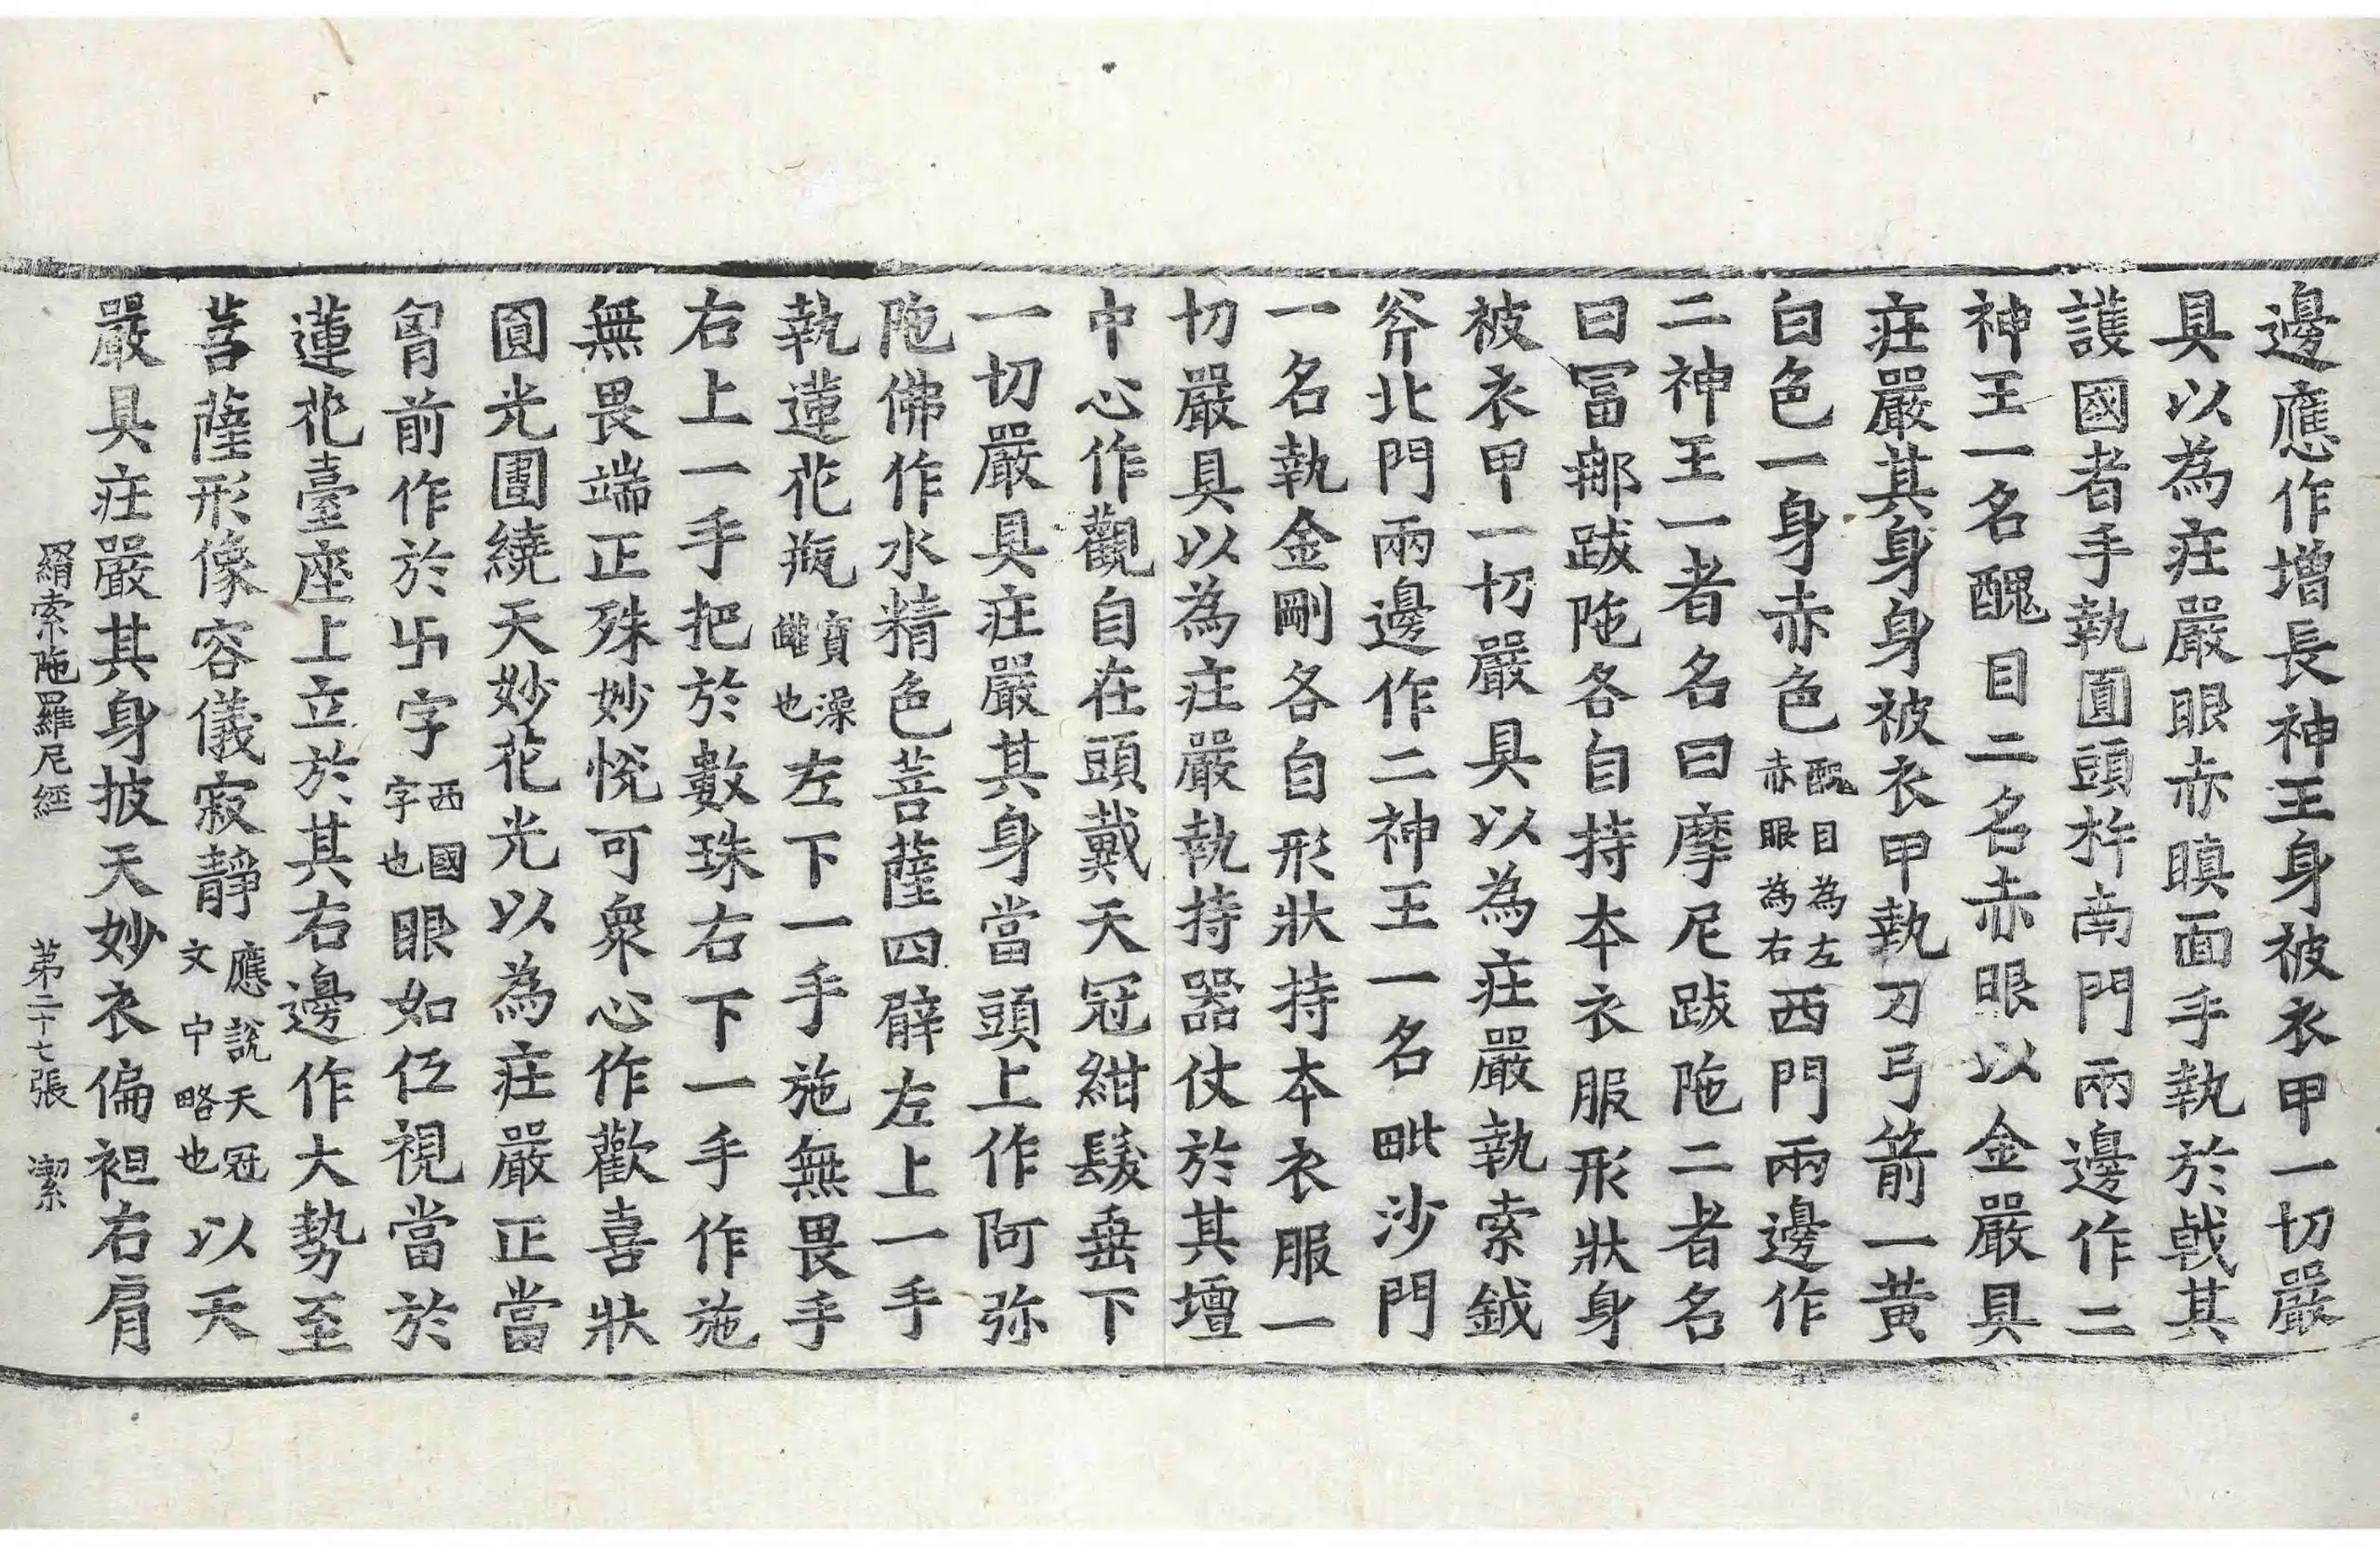 邊應作增長神王身被衣甲一切嚴
具以為莊嚴眼赤瞋面手執於戟其
護國者手執圓頭杵南門兩邊作二
神王一名醜目二名赤眼以金嚴具
莊嚴其身身被衣甲執刀弓箭一黃
白色一身赤色醜目為左赤眼為右西門兩邊作
二神王一者名曰摩尼跋陁二者名
曰冨那跋陁各自持本衣服形狀身
被衣甲一切嚴具以為莊嚴執索鉞
斧北門兩邊作二神王一名毗沙門
一名執金剛各自形狀持本衣服一
切嚴具以為莊嚴執持器仗於其壇
中心作觀自在頭戴天冠紺髮垂下
一切嚴具莊嚴其身當頭上作阿弥
陁佛作水精色菩薩四臂左上一手
執蓮花瓶寶澡鑵也左下一手施無畏手
右上一手把於數珠右下一手作施
無畏端正殊妙悅可衆心作歡喜狀
圓光圍繞天妙花光以為莊嚴正當
胷前作於卐字西國字也眼如伍視當於
蓮花臺座上立於其右邊作大勢至
菩薩形像容儀寂靜應說天冠文中略也以天
嚴具莊嚴其身披天妙衣偏袒右肩
羂索陁羅尼經 苐二十七張 潔